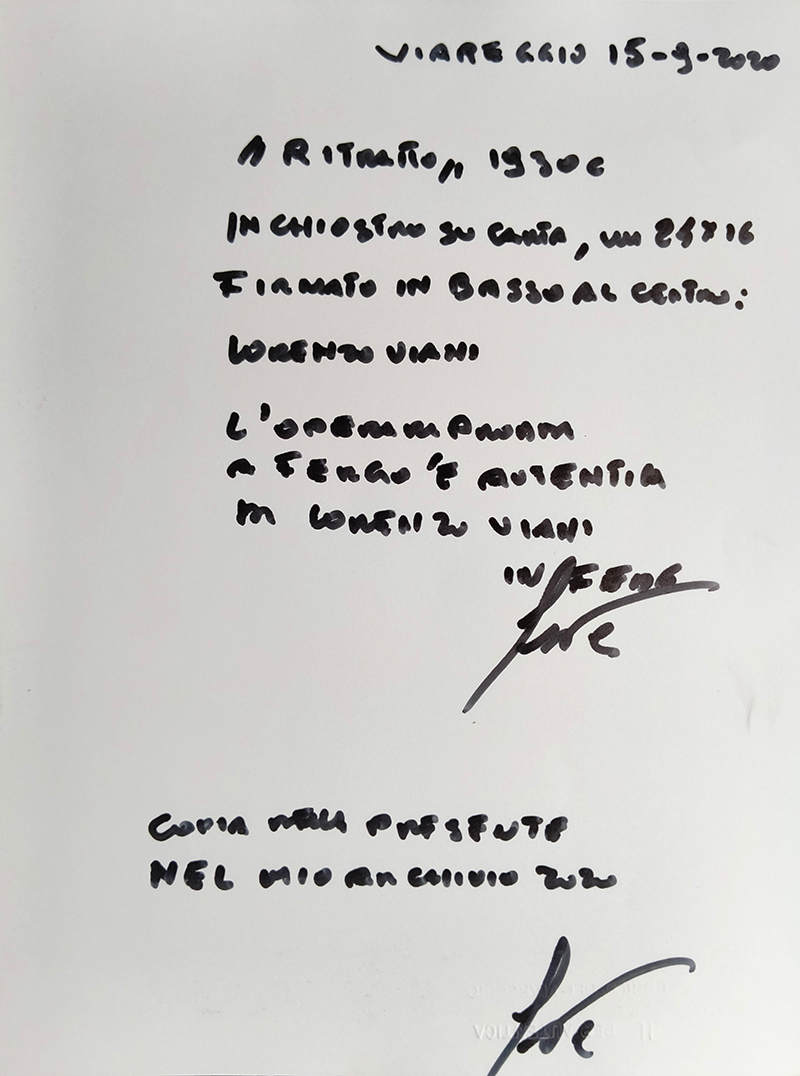 VIAREGGIO 15-9-2020
RITRATTO,, 1930C
INCHIOSTRO SU CARTA, MM
FIRMATO IN BASSO AL CENTRO:
LORENZO VIANI
L'OPERA
A TERGO È AUTENTICA
DI LORENZO VIANI
IN FEDE
COPIA DELLA PRESENTE
NEL MIO ARCHIVIO 2020